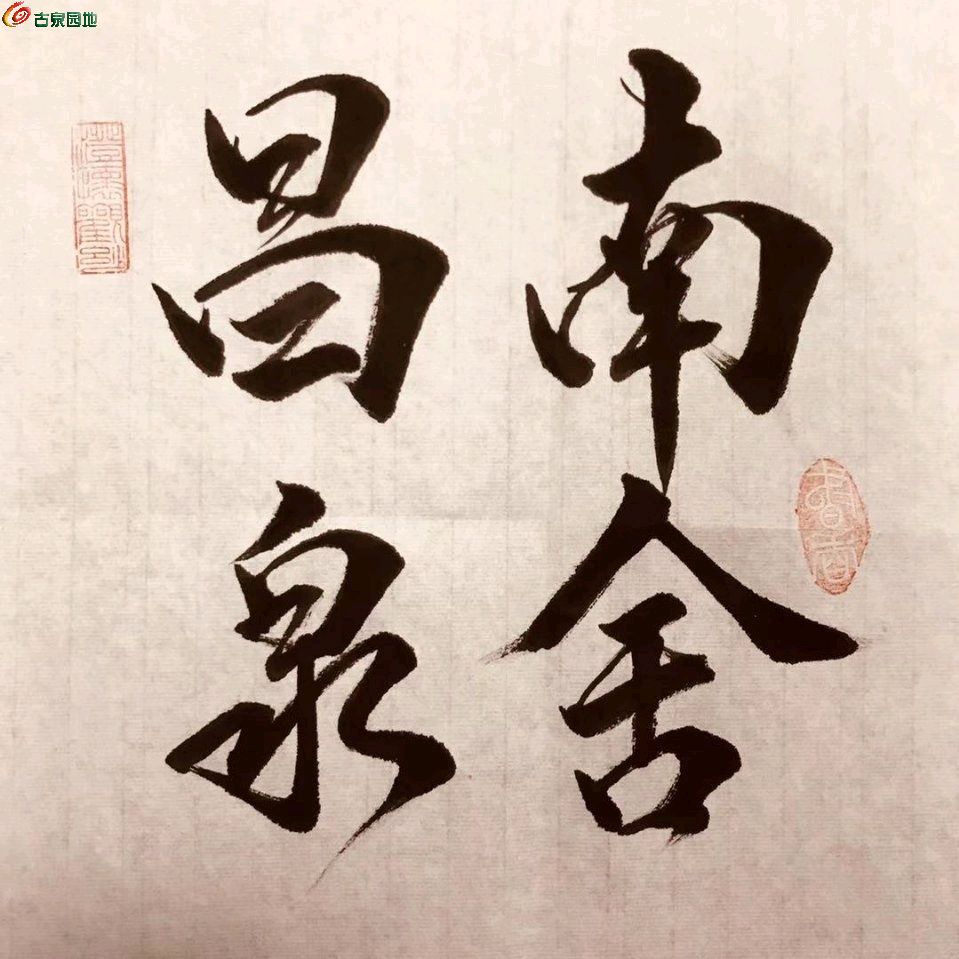 古泉园地
南舍
昌泉